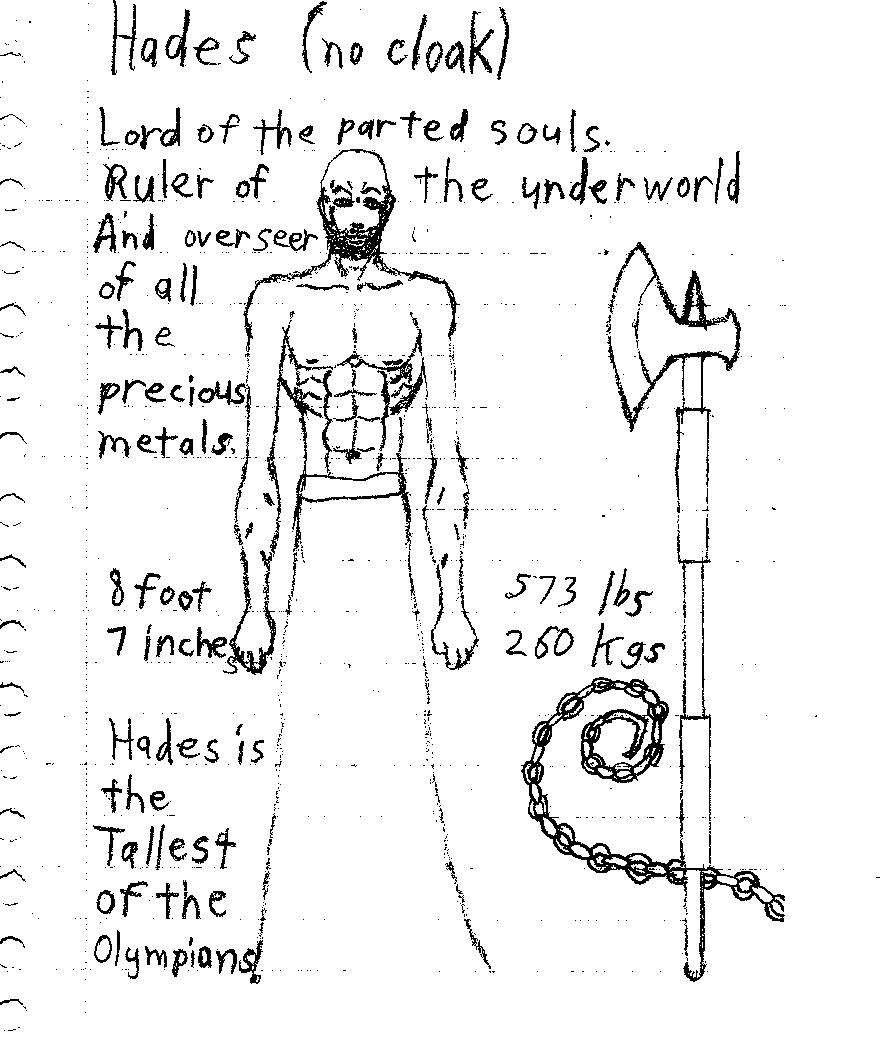 Hades (no cloak)
Lord of the parted souls.
Ruler of the underworld
And overseer
of all
the
precious
metals.
8 foot
7 inches
573 lbs
260 kgs
Hades is
the
Tallest
of the
Olympians!